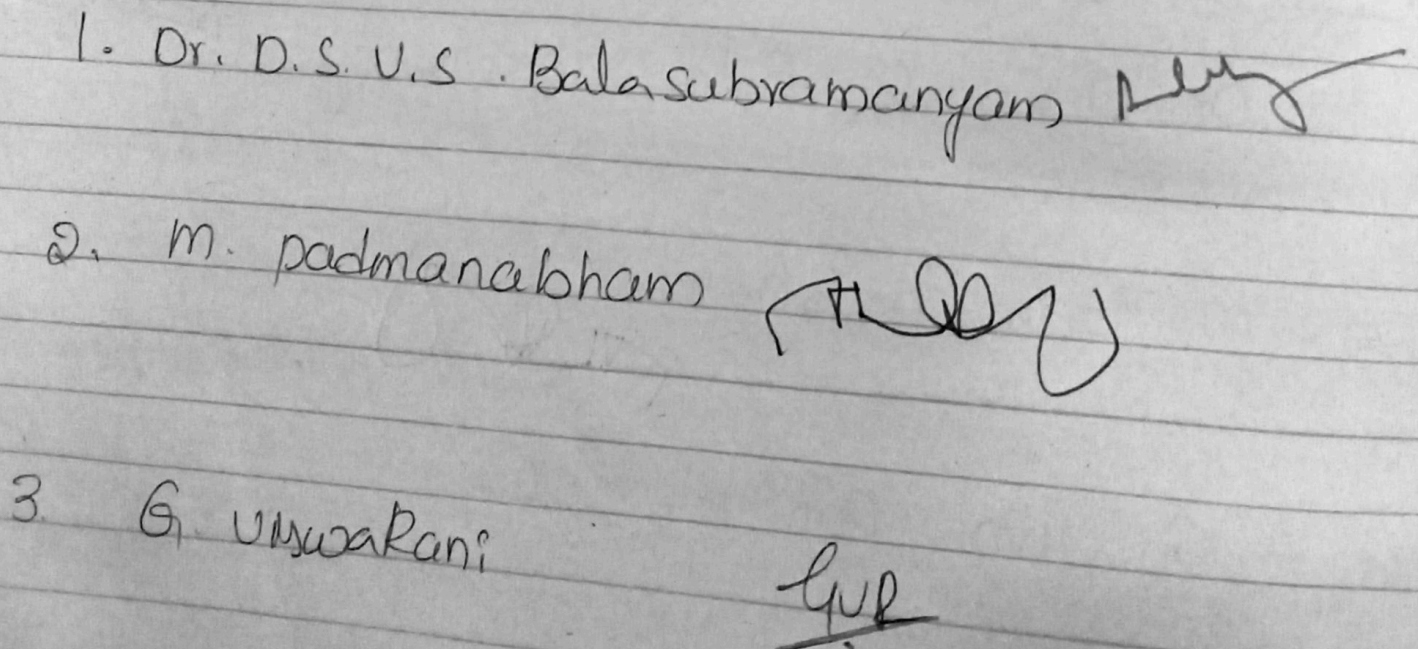 1. Dr. D.S.V.S. Balasubramanyam
2. M. Padmanabham
3. G. ViswaRani
GVR